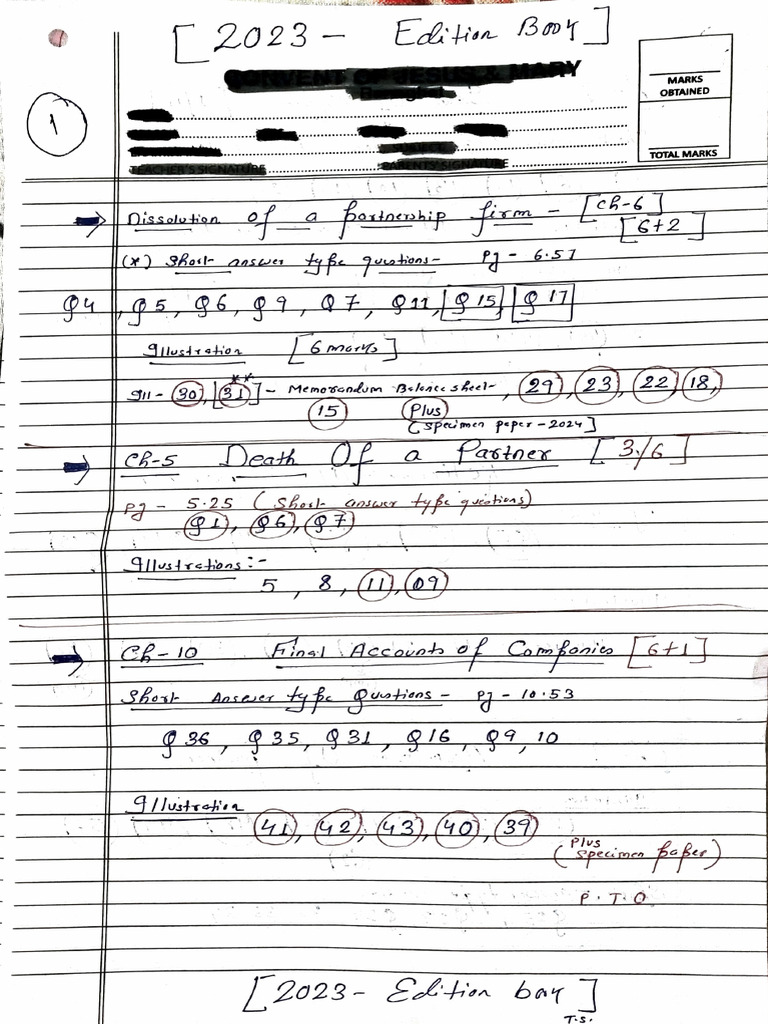 [2023 - Edition Book]
CONVENT OF JESUS & MARY
MARKS
OBTAINED
TOTAL MARKS
1
TEACHER'S SIGNATURE PARENTS' SIGNATURE
→ Dissolution of a partnership firm - [Ch-6]
[6+2]
(*) Short answer type questions - Pg - 6.57
Q4, Q5, Q6, Q9, Q7, Q11, Q15, Q17
Illustration [6 marks]
Ill - 30, [31**] - Memorandum Balance sheet-, 29, 23, 22, 18,
15 Plus
[specimen paper - 2024]
→ Ch-5 Death Of a Partner [3/6]
Pg - 5.25 (Short answer type questions)
Q1, Q6, Q7
Illustrations :-
5, 8, 11, 09
→ Ch-10 Final Accounts of Companies [6+1]
Short Answer type Questions - Pg - 10.53
Q36, Q35, Q31, Q16, Q9, 10
Illustration
41, 42, 43, 40, 39
(Plus
specimen paper)
P.T.O
[2023 - Edition
T.S.